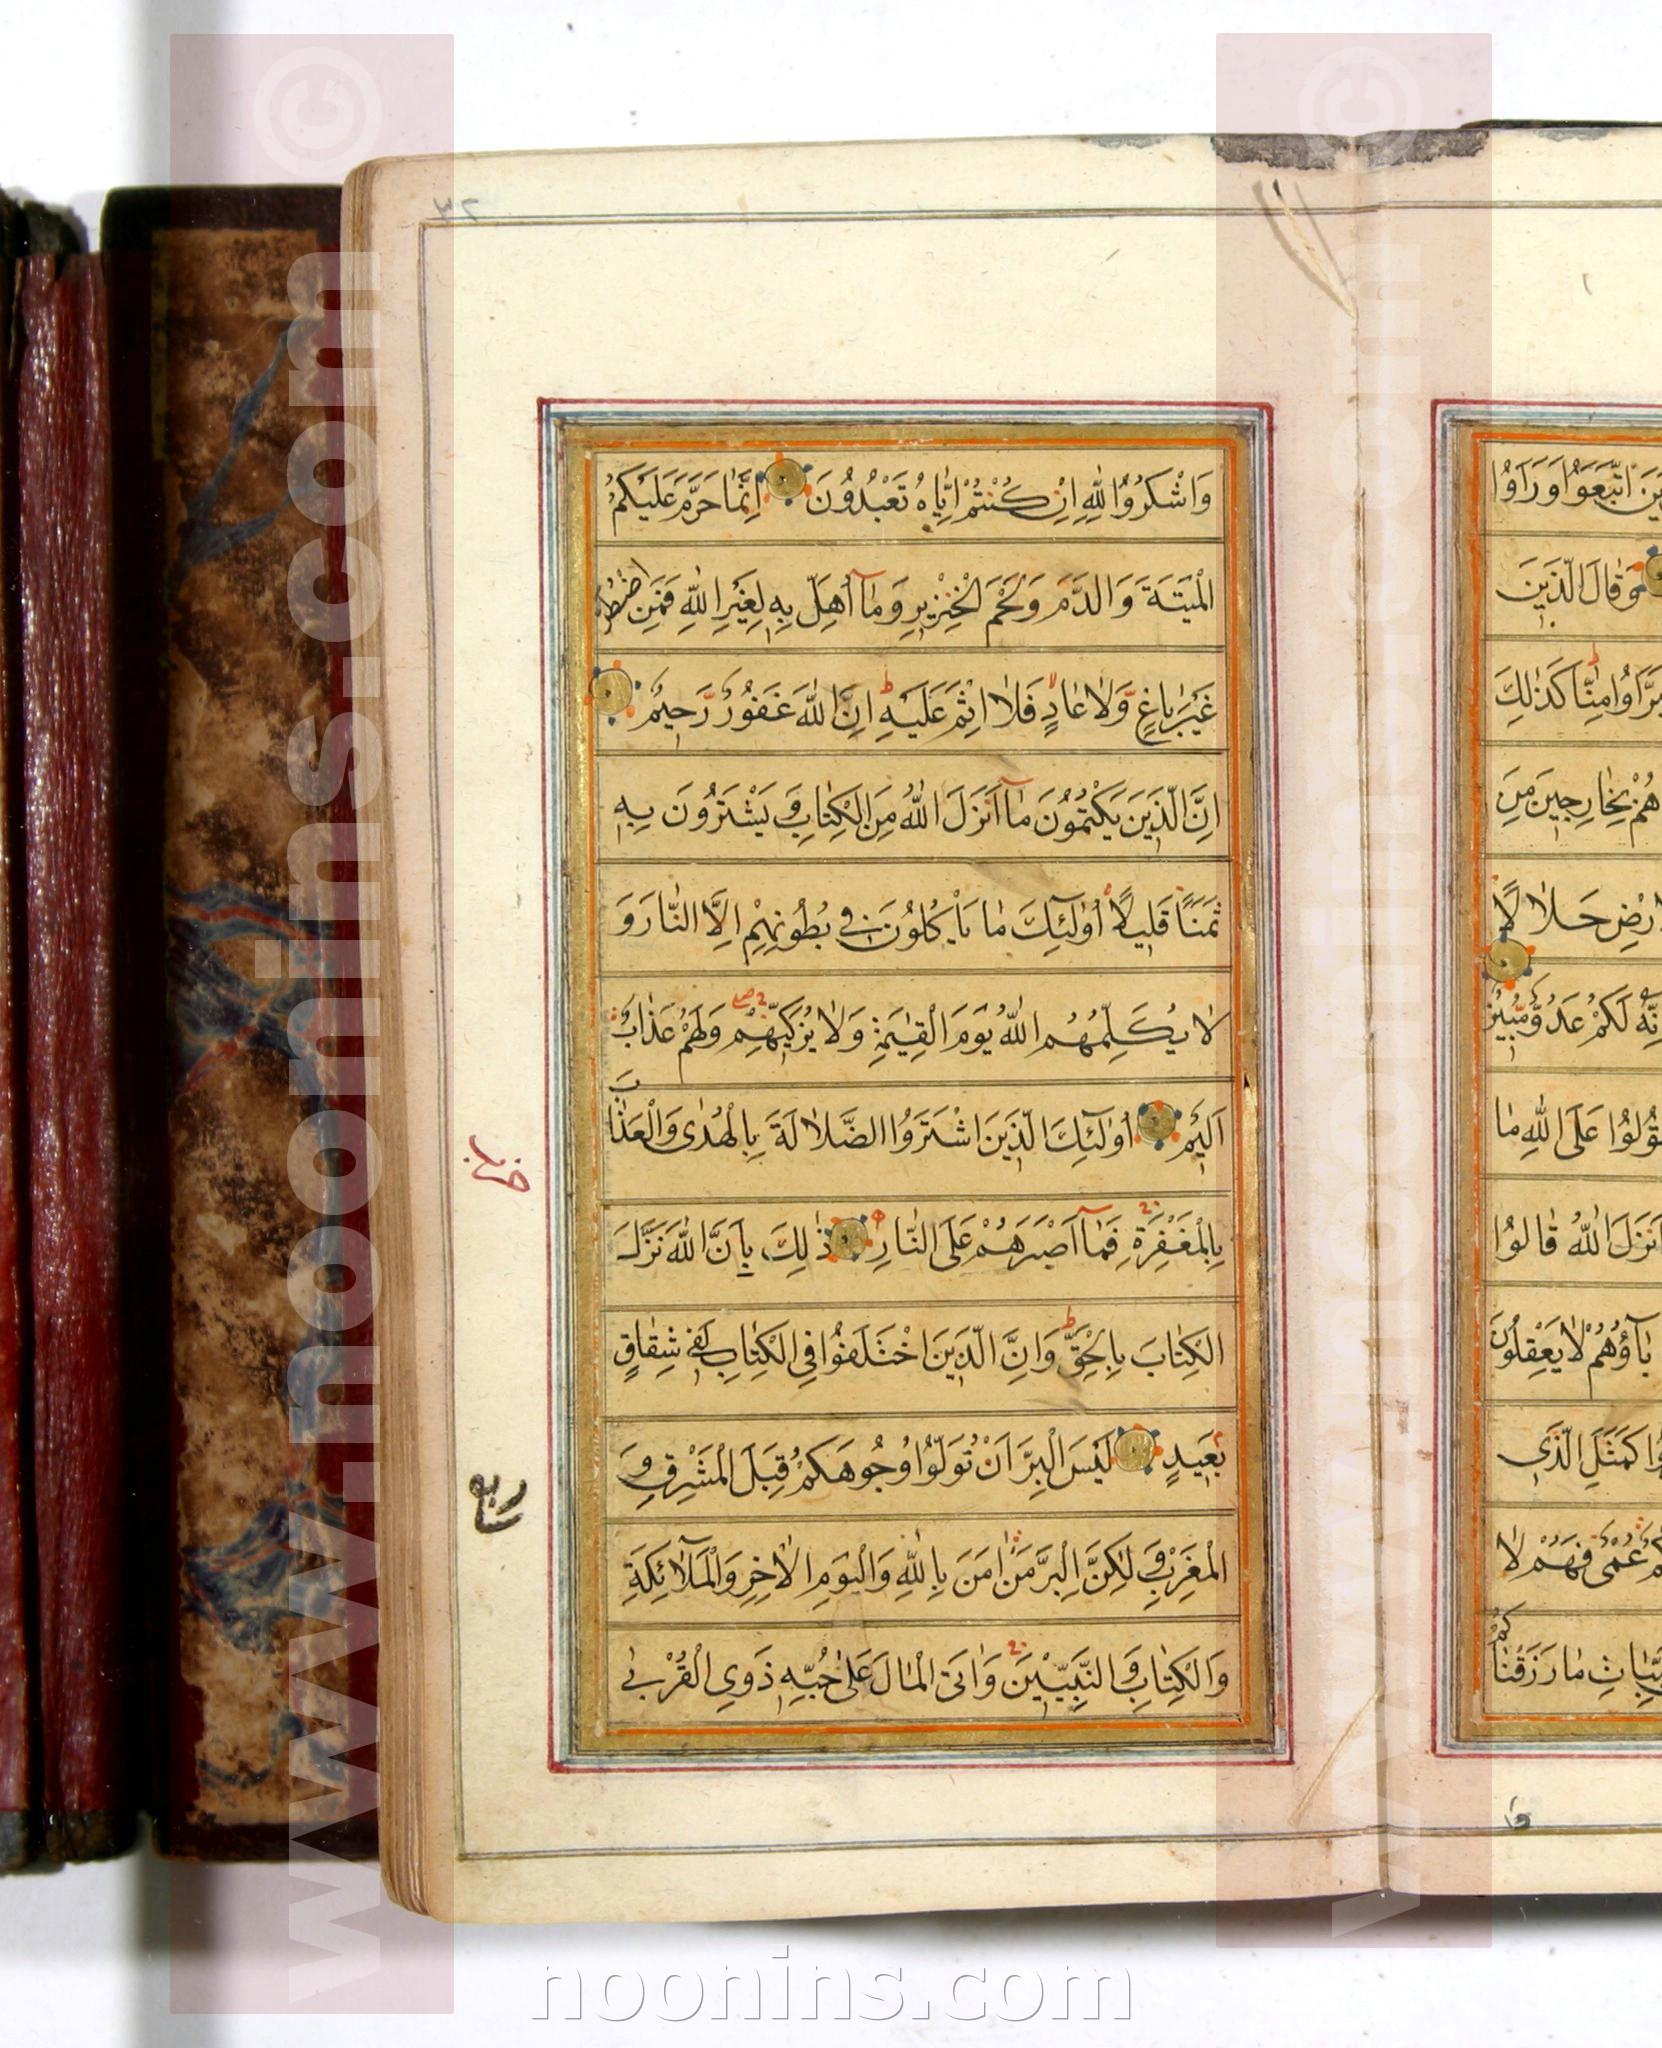 وَاشْكُرُوا لِلّٰهِ اِنْ كُنْتُمْ اِيَّاهُ تَعْبُدُونَ اِنَّمَا حَرَّمَ عَلَيْكُمُ
الْمَيْتَةَ وَالدَّمَ وَلَحْمَ الْخِنْزِيرِ وَمَآ اُهِلَّ بِهِ لِغَيْرِ اللّٰهِ فَمَنِ اضْطُرَّ
غَيْرَ بَاغٍ وَّلَا عَادٍ فَلَآ اِثْمَ عَلَيْهِ اِنَّ اللّٰهَ غَفُورٌ رَّحِيمٌ
اِنَّ الَّذِينَ يَكْتُمُونَ مَآ اَنْزَلَ اللّٰهُ مِنَ الْكِتَابِ وَيَشْتَرُونَ بِهِ
ثَمَنًا قَلِيلًا اُولٰٓئِكَ مَا يَاْكُلُونَ فِي بُطُونِهِمْ اِلَّا النَّارَ وَ
لَا يُكَلِّمُهُمُ اللّٰهُ يَوْمَ الْقِيٰمَةِ وَلَا يُزَكِّيهِمْ وَلَهُمْ عَذَابٌ
اَلِيمٌ اُولٰٓئِكَ الَّذِينَ اشْتَرَوُا الضَّلَالَةَ بِالْهُدٰى وَالْعَذَابَ
بِالْمَغْفِرَةِ فَمَآ اَصْبَرَهُمْ عَلَى النَّارِ ذٰلِكَ بِاَنَّ اللّٰهَ نَزَّلَ
الْكِتَابَ بِالْحَقِّ وَاِنَّ الَّذِينَ اخْتَلَفُوا فِي الْكِتَابِ لَفِي شِقَاقٍ
بَعِيدٍ لَيْسَ الْبِرَّ اَنْ تُوَلُّوا وُجُوهَكُمْ قِبَلَ الْمَشْرِقِ وَ
الْمَغْرِبِ وَلٰكِنَّ الْبِرَّ مَنْ اٰمَنَ بِاللّٰهِ وَالْيَوْمِ الْاٰخِرِ وَالْمَلٰٓائِكَةِ
وَالْكِتَابِ وَالنَّبِيّٖنَ وَاٰتَى الْمَالَ عَلٰى حُبِّهِ ذَوِي الْقُرْبٰى
اتَّبَعُوا وَرَاَوُا
وَقَالَ الَّذِينَ
كَذٰلِكَ
هُمْ بِخَارِجِينَ مِنَ
حَلَالًا
لَكُمْ عَدُوٌّ مُّبِينٌ
عَلَى اللّٰهِ مَا
اَنْزَلَ اللّٰهُ قَالُوا
لَا يَعْقِلُونَ
كَمَثَلِ الَّذِي
عُمْيٌ فَهُمْ لَا
مَا رَزَقْنَاكُمْ
www.noonins.com ©
www.noonins.com ©
noonins.com